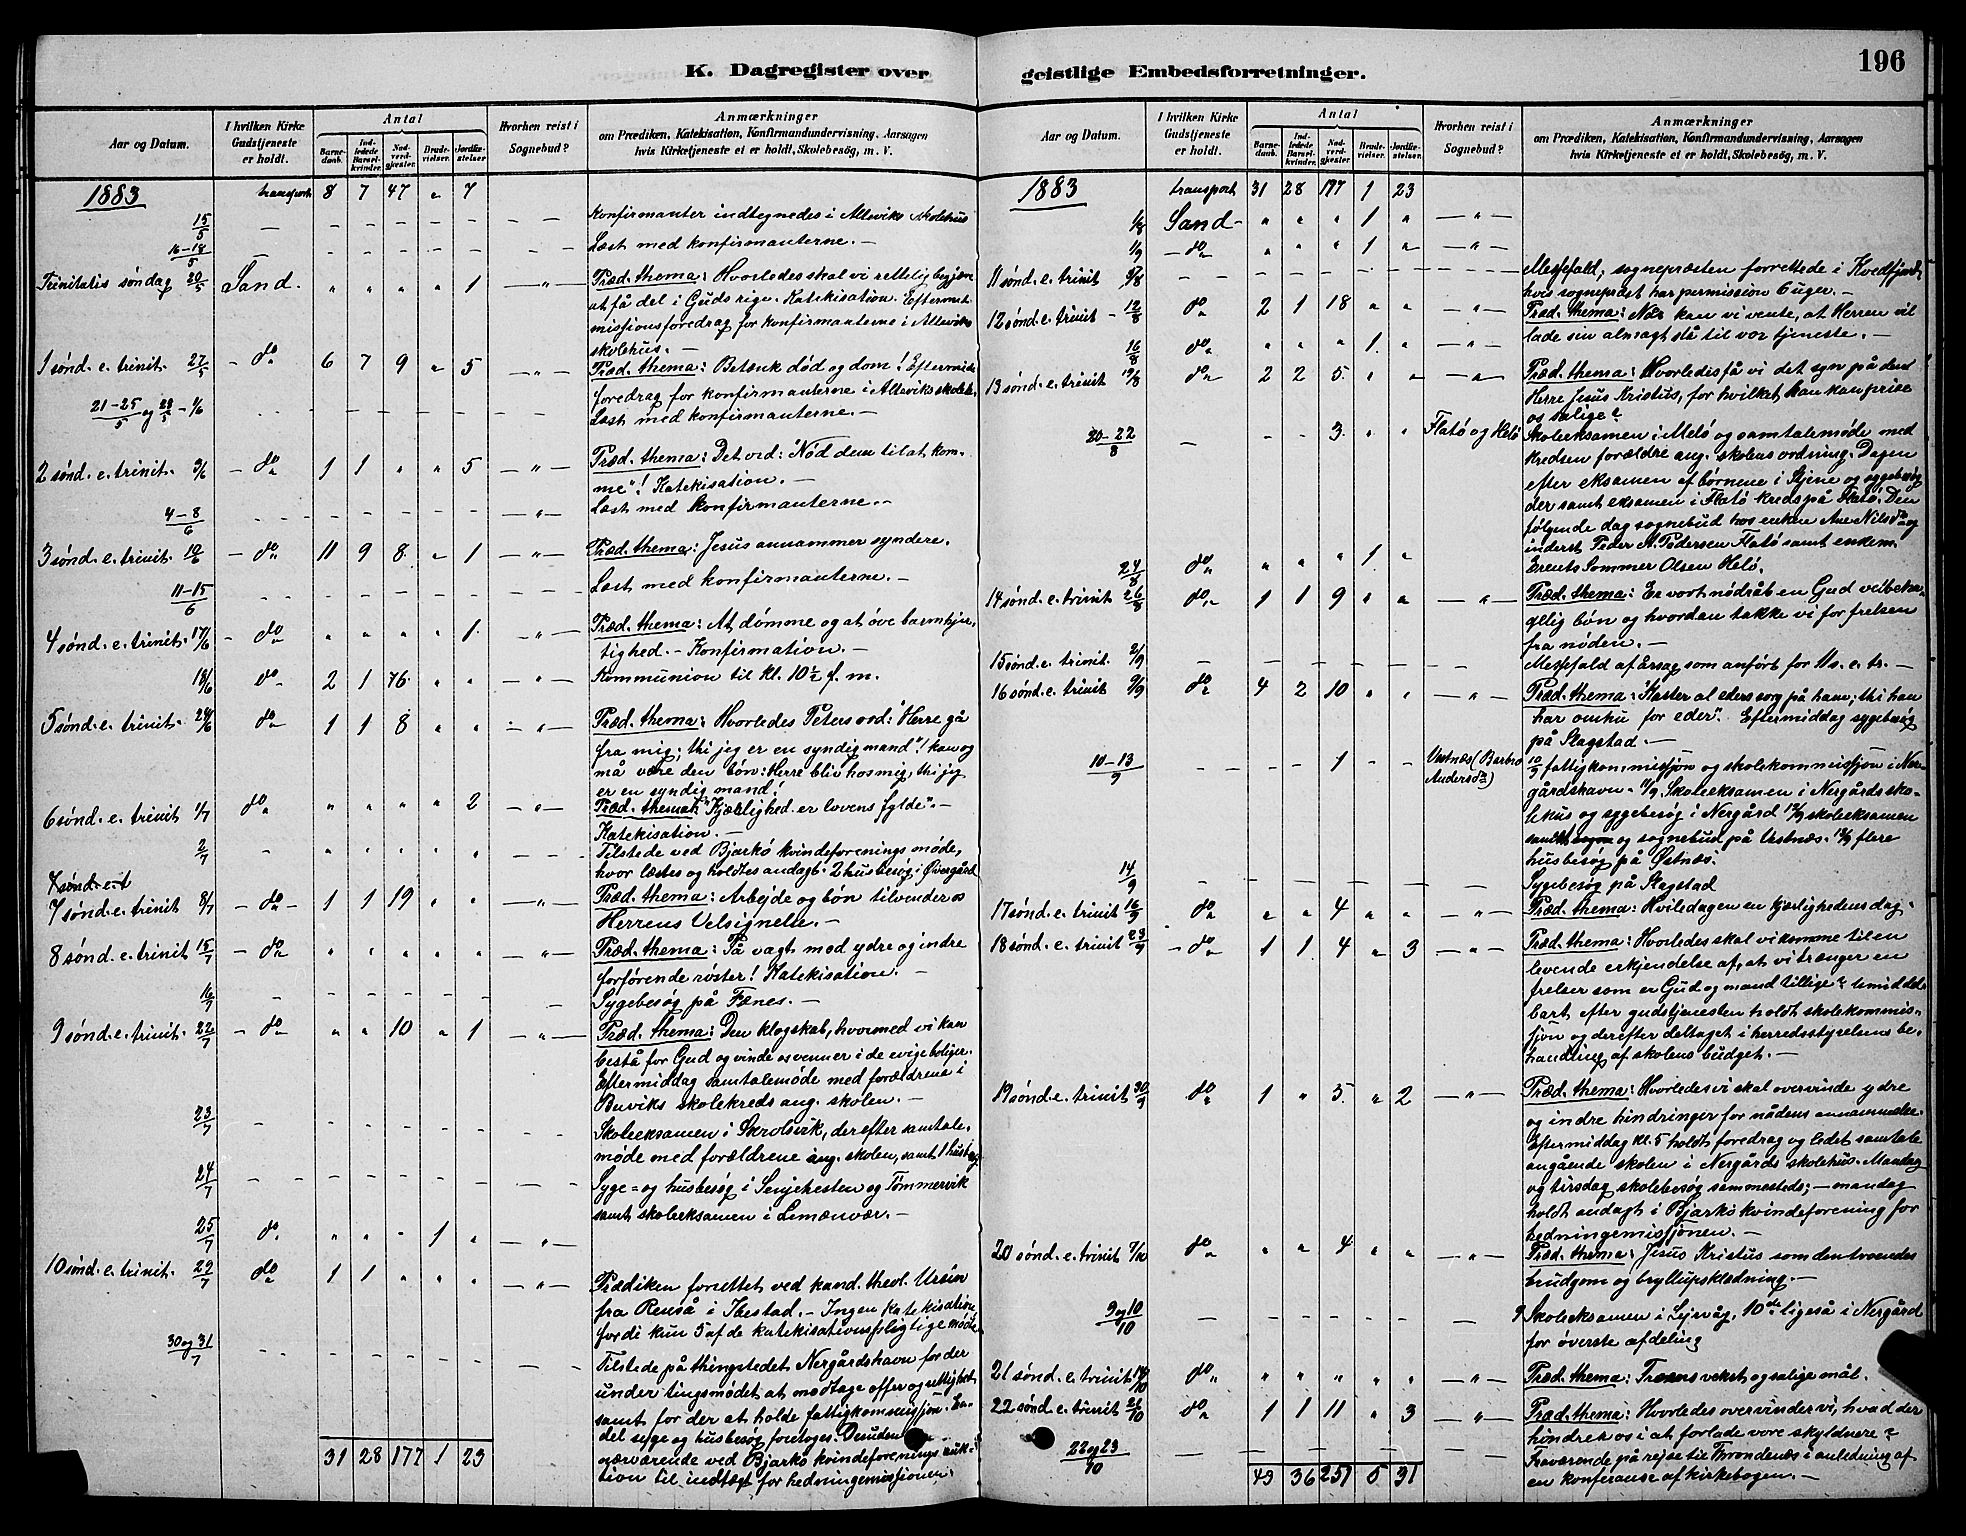 K. Dagregister over
Aar og Datum.
I hvilken Kirke Gudstjeneste er holdt.
Antal
Barnedaab. Indledede Barselkvinder. Nadverdgjester. Brudevielser. Jordfæstelser
Hvorhen reist i Sognebud?
Anmærkninger
om Prædiken, Katekisation, Konfirmandundervisning, Aarsagen
hvis Kirketjeneste ei er holdt, Skolebesøg, m. V.
1883 transport 8 7 47 " 7
15/5 — Konfirmanter indtegnedes i Allsviks Skolehus
16–18/5 Læst med konfirmanterne. —
Trinitatis søndag 20/5 Sand. " " " " 1 — " — Præd. thema: Hvorledes skal vi rettelig begjære
at få del i Guds rige. Katekisation. Efterm.
missionsforedrag for konfirmanterne i Allsviks
skolehus. —
1 sønd. e. trinit. 27/5 — do 6 7 9 " 5 — " — Præd. thema: Betænk død og dom! Eftermid.
foredrag for konfirmanterne i Allsviks skoleh.
21–25/5 og 28/5 – 1/6 Læst med konfirmanterne. —
2 sønd. e. trinit. 3/6 — do 1 1 " " 5 — " — Præd. thema: Det ord: "Nød dem til at kom-
me"! Katekisation. —
4–8/6 — " — Læst med konfirmanterne. —
3 sønd. e. trinit. 10/6 — do 11 9 8 " 1 — " — Præd. thema: Jesus annammer syndere.
11–15/6 Læst med konfirmanterne. —
4 sønd. e. trinit. 17/6 — do " " " " 1 — " — Præd. thema: At dømme og at øve barmhjer-
tighed. — Konfirmation. —
18/6 do 2 1 76 " " — " — Kommunion til kl. 10½ f. m.
5 sønd. e. trinit. 24/6 do 1 1 8 " " — " — Præd. thema: Hvorledes Peters ord: "Herre gå
fra mig; thi jeg er en syndig mand"! kan og
må være den bøn: Herre bliv hos mig, thi jeg
er en syndig mand!
6 sønd. e. trinit 1/7 do " " " " 2 — " — Præd. thema: "Kjærlighed er lovens fylde". —
Katekisation. —
2/7 Tilstede ved Bjarkø kvindeforenings møde,
hvor læstes og holdtes andagt. 2 husbesøg i Øvergård
7 sønd. e. t
7 sønd. e. trinit 8/7 — do — 1 1 19 " " — " — Præd. thema: Arbejde og bøn tilvender os
Herrens Velsignelse. —
8 sønd. e. trinit 15/7 — do " " " " " — " — Præd. thema: På vagt mod ydre og indre
forførende røster! Katekisation. —
16/7 Sygebesøg på Fænes. —
9 sønd. e. trinit. 22/7 — do — " " 10 " 1 — " — Præd. thema: Den klogskab, hvormed vi kan
bestå for Gud og vinde os venner i de evige boliger.
Eftermiddag samtalemøde med forældrene i
Buviks skolekreds ang. skolen. —
23/7 Skoleeksamen i Skrolsvik, derefter samtale-
møde med forældrene ang. skolen, samt 1 husbesøg
24/7 Syge- og husbesøg i Senjehesten og Tømmervik
samt skoleeksamen i Lemænvær. —
25/7 do " " - 1 " — " —
10 sønd. e. trinit. 29/7 do 1 1 " " " — " — Prædiken forrettet ved kand. theol. Ursin
fra Renså i Ibestad. — Ingen katekisation
fordi kun 5 af de katekisationspligtige mødte
30 og 31/7 Tilstede på thingstedet Nergårdshavn for der
under tingsmødet at modtage offer og rettighed
samt for der at holde fattigkommisjon. En-
del syge og husbesøg foretoges. Desuden
nærværende ved Bjarkø kvindeforenings auk-
tion til indtægt for hedningemissionen.
31 28 177 1 23
geistlige Embedsforretninger.
196
Aar og Datum.
I hvilken Kirke Gudstjeneste er holdt.
Antal
Barnedaab. Indledede Barselkvinder. Nadverdgjester. Brudevielser. Jordfæstelser.
Hvorhen reist i Sognebud?
Anmærkninger
om Prædiken, Katekisation, Konfirmandundervisning, Aarsagen
hvis Kirketjeneste ei er holdt, Skolebesøg, m. V.
1883 transport 31 28 177 1 23
1/8 Sand — " " " 1 " — " —
1/9 — do " " " 1 " — " —
11 sønd. e. trinit 5/8 Messefald, sognepræsten forrettede i Kvedfjord,
hvis sognepræst har permission 6 uger. —
12 sønd. e. trinit — 12/8 do 2 1 18 " " — " — Præd. thema: Når kan vi vente, at Herren vil
lade sin almagt stå til vor tjeneste. —
16/8 do " " " 1 " — " —
13 sønd. e. trinit 19/8 do 2 2 5 " " — " — Præd. thema: Hvorledes få vi det syn på den
Herre Jesus Kristus, for hvilket han kan prise
os salige?
20–22/8 — - - 3 " " Flatø og Helø Skoleeksamen i Melø og samtalemøde med
kredsen forældre ang. skolens ordning. Dagen
efter eksamen af børnene i Stjene og sygebesøg
der samt eksamen i Flatø kreds på Flatø. Den
følgende dag sognebud hos enken Ane Nilsd. og
inderst Peder A. Pedersen Flatø samt endem.
Erents Sommer Olsen Helø.
24/8 do " " " 1 "
14 sønd. e. trinit 26/8 do 1 1 9 " " — " — Præd. thema: Er vort nødråb en Gud velbeha-
gelig bøn og hvordan takke vi for frelsen
fra nøden. —
15 sønd. e. trinit. 2/9 Messefald af årsag som anført for 11 s. e. tr. —
16 sønd. e. trinit 9/9 do 4 2 10 " " — " — Præd. thema: "Kaster al eders sorg på ham; thi han
har omhu for eder". Eftermiddag sygebesøg
på Slagstad. —
10–13/9 1 - - Vestnæs (Barbro Andersd.) 10/9 fattigkommissjon og skolekommissjon i Ner-
gårdshavn. 11/9 Skoleeksamen i Nergårds sko-
lehus og sygebesøg i Nergård 12/9 skoleeksamen
og sognebud på Vestnæs. 13/9 flere
husbesøg på Østnæs.
14/9 Sygebesøg på Slagstad
17 sønd. e. trinit 16/9 do " " 4 " " — " — Præd. thema: Hviledagen en kjærlighedens dag.
18 sønd. e. trinit 23/9 — do 1 1 4 " 3 — " — Præd. thema: Hvorledes skal vi komme til en
levende erkjendelse af, at vi trænger en
frelser som er Gud og mand tillige? Umiddel-
bart efter gudstjenesten holdt skolekommis-
sjon og derefter deltaget i herredsstyrelsens be-
handling af skolens budget. —
19 sønd. e. trinit 30/9 do 1 " 5 " 2 — " — Præd. thema: Hvorledes vi skal overvinde ydre
og indre hindringer for nådens annammelse.
Eftermiddag kl. 5 holdt foredrag og ledet samtale
angående skolen i Nergårds skolehus. Mandag
og tirsdag skolebesøg sammesteds; — mandag
holdt andagt i Bjarkø kvindeforening for
hedningemissjonen. —
20 sønd. e. trinit 7/10 do " " 4 " " — " — Præd. thema: Jesus Kristus som den troendes
brudgom og bryllupsklædning. —
9 og 10/10 9 Skoleeksamen i Lejvåg, 10de ligeså i Nergård
for øverste afdeling
21 sønd. e. trinit 14/10 do " " " " " — " — Præd. thema: Troens vekst og salige mål.
22 sønd. e. trinit 21/10 do 1 1 11 " 3 — " — Præd. thema: Hvorledes overvinder vi, hvad der
hindrer os i at forlade vore skyldnere?
22 og 23/10 Fraværende på rejse til Throndenæs i anledning af
en konferanse af kirkebogen. —
43 36 251 5 31